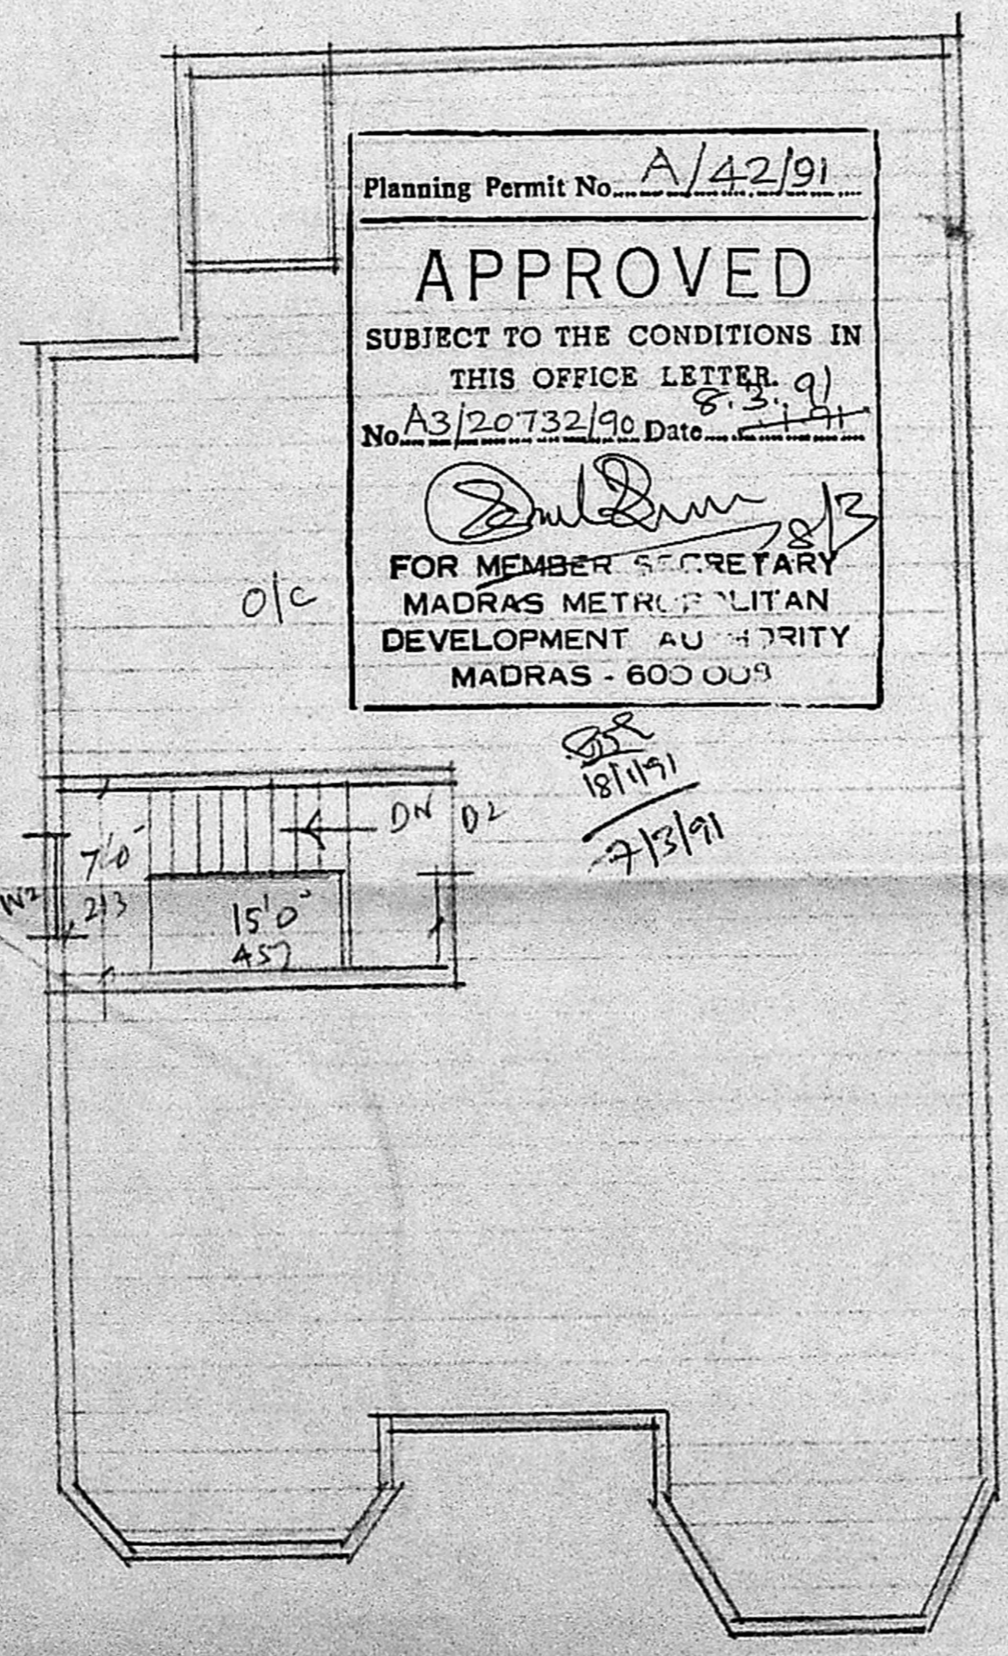 Planning Permit No. A/42/91
APPROVED
SUBJECT TO THE CONDITIONS IN
THIS OFFICE LETTER.
8.3.91
No. A3/20732/90 Date
8/3
FOR MEMBER SECRETARY
MADRAS METROPOLITAN
DEVELOPMENT AUTHORITY
MADRAS - 600 009
O/C
18/1/91
7/3/91
DN D2
7'0"
W2 213
15'0"
457